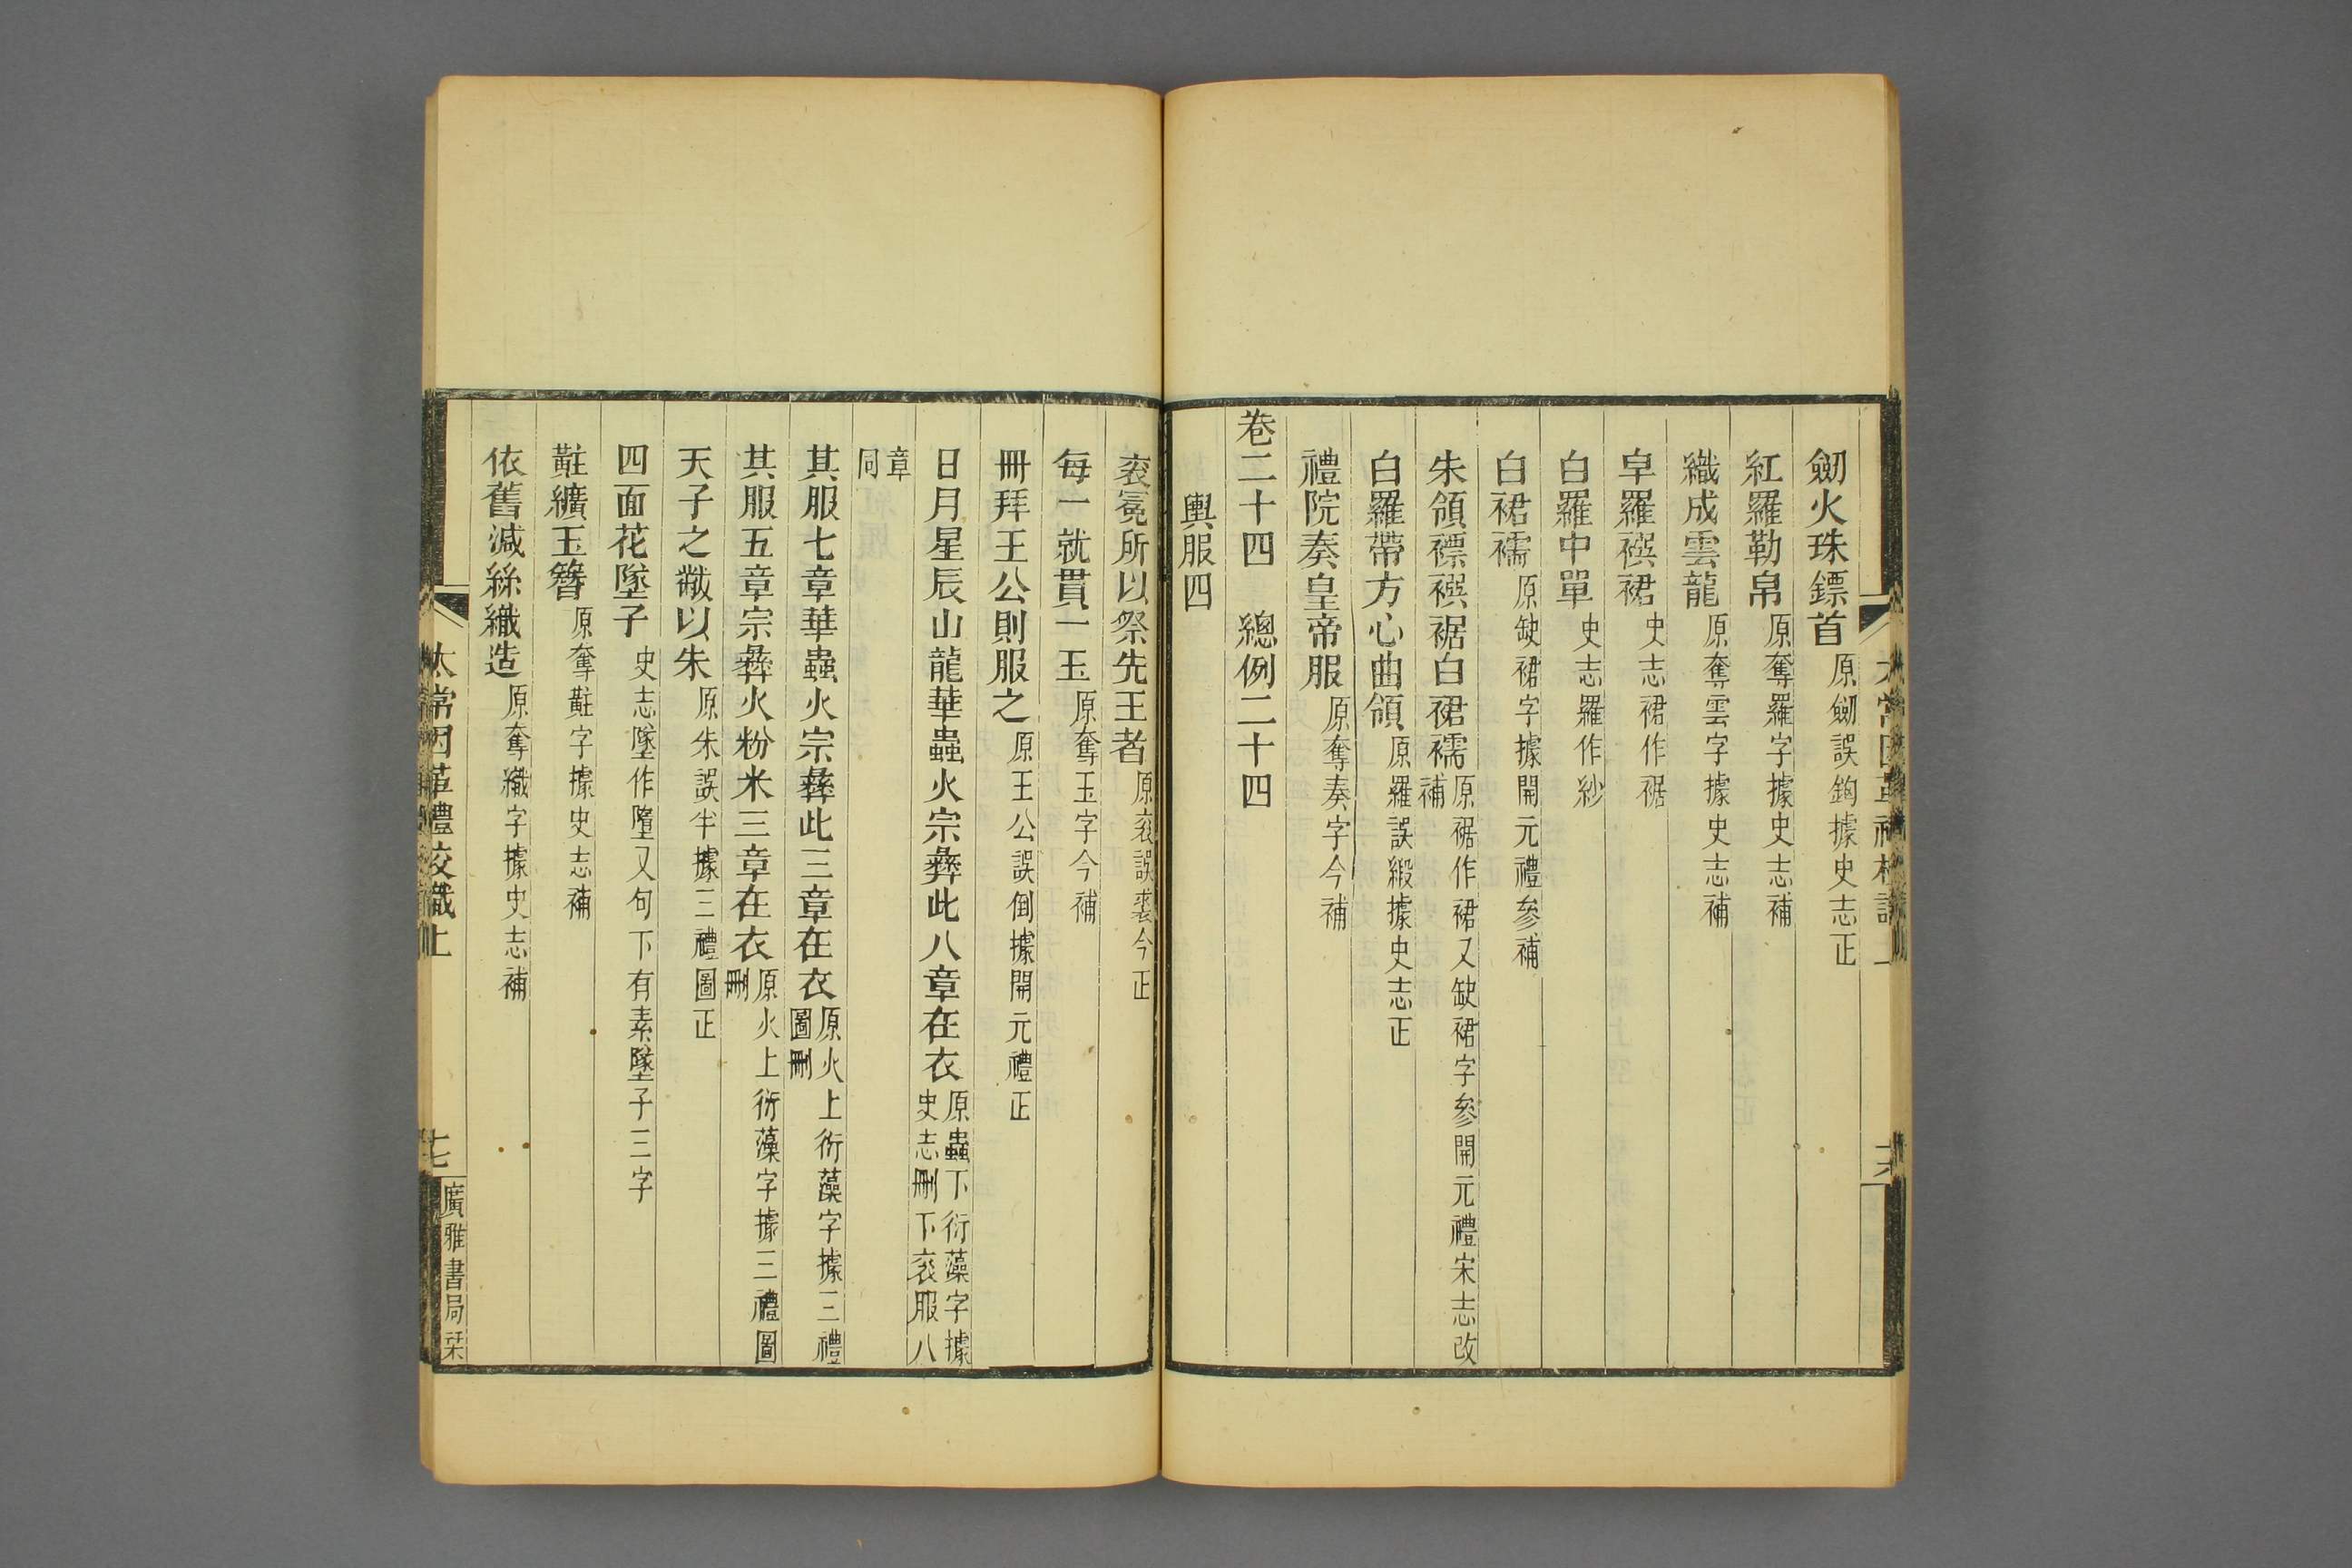 劒火珠鏢首原劒誤鈎據史志正
紅羅勒帛原奪羅字據史志補
織成雲龍原奪雲字據史志補
皁羅襈裙史志裙作裾
白羅中單史志羅作紗
白裙襦原缺裙字據開元禮參補
朱領褾襈裾白裙襦原裾作裙又缺裙字參開元禮宋志改補
白羅帶方心曲領原羅誤緞據史志正
禮院奏皇帝服原奪奏字今補
卷二十四　總例二十四
輿服四
袞冕所以祭先王者原袞誤裘今正
每一就貫一玉原奪玉字今補
冊拜王公則服之原王公誤倒據開元禮正
日月星辰山龍華蟲火宗彝此八章在衣原蟲下衍藻字據史志刪下袞服八
章同
其服七章華蟲火宗彝此三章在衣原火上衍藻字據三禮圖刪
其服五章宗彝火粉米三章在衣原火上衍藻字據三禮圖刪
天子之黻以朱原朱誤半據三禮圖正
四面花墜子史志墜作墮又句下有素墜子三字
黈纊玉簪原奪黈字據史志補
依舊減絲織造原奪織字據史志補
太常因革禮校識上
七
廣雅書局栞